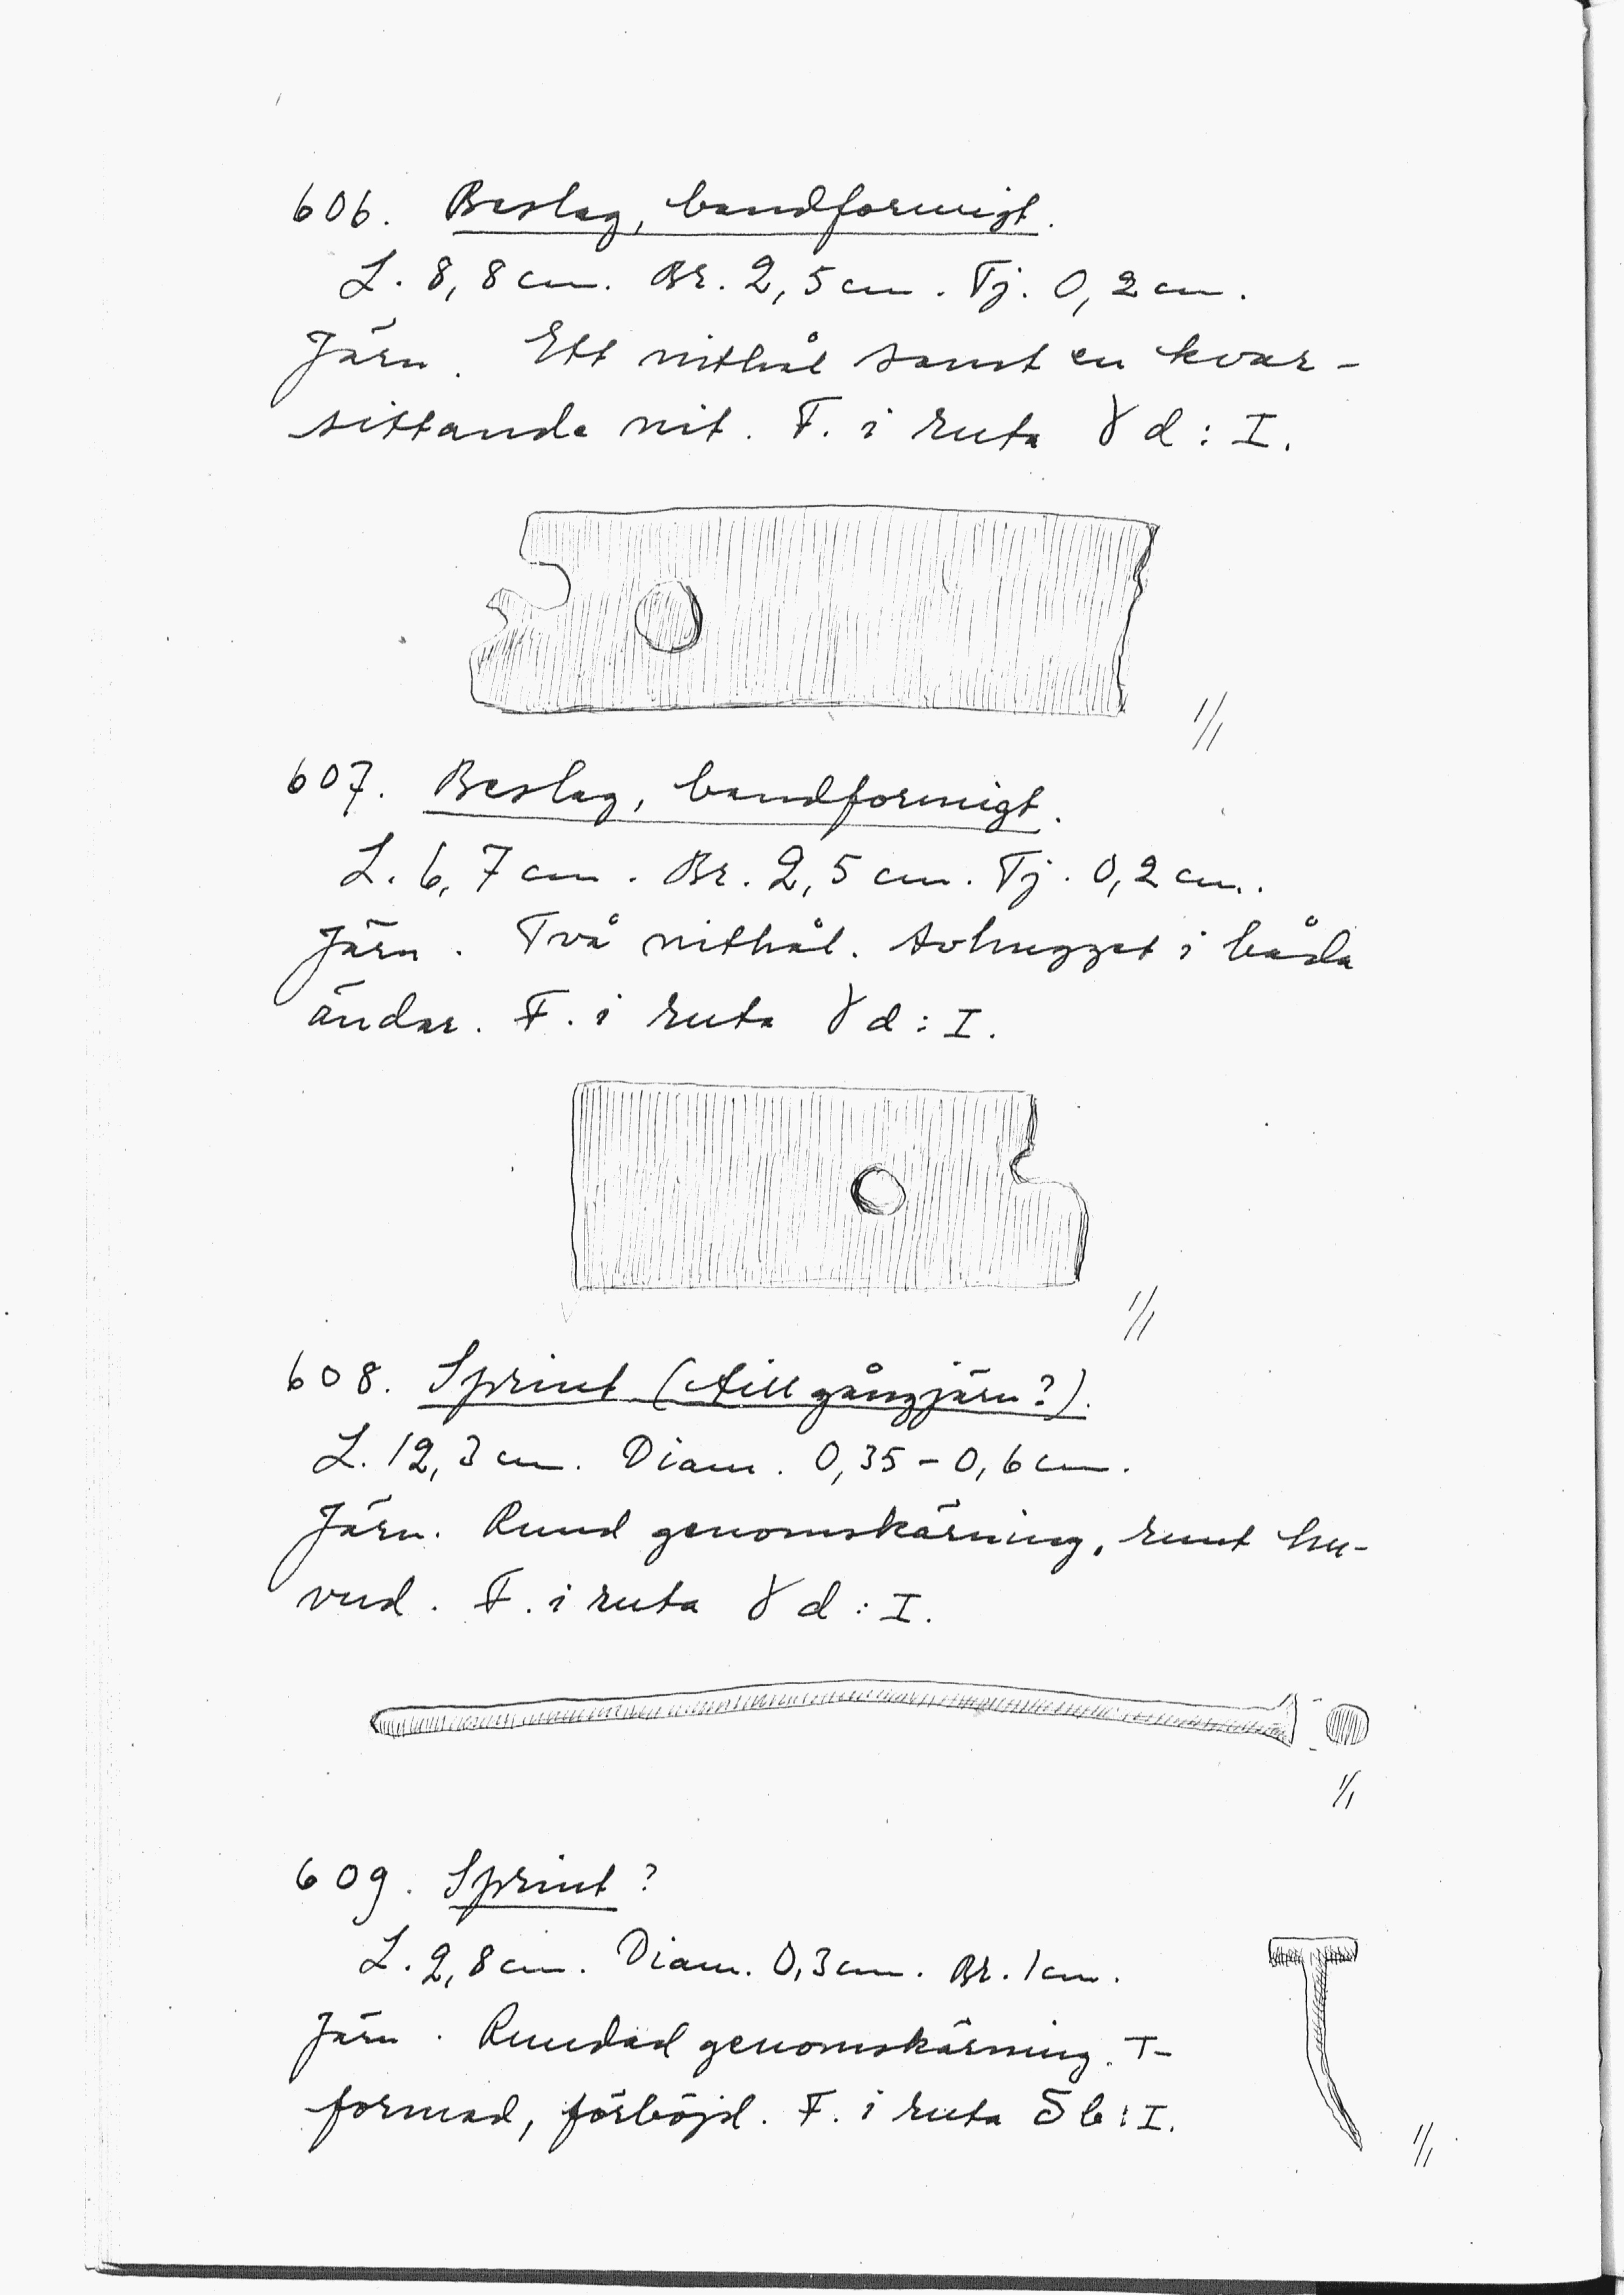 606. Beslag, bandformigt.
L. 8,8 cm. Br. 2,5 cm. Tj. 0,2 cm.
Järn. Ett nithål samt en kvar-
sittande nit. F. i ruta γ d : I.
1/1
607. Beslag, bandformigt.
L. 6,7 cm. Br. 2,5 cm. Tj. 0,2 cm.
Järn. Två nithål. Avhugget i båda
ändar. F. i ruta γ d : I.
1/1
608. Sprint (till gångjärn?).
L. 12,3 cm. Diam. 0,35 - 0,6 cm.
Järn. Rund genomskärning, runt hu-
vud. F. i ruta γ d : I.
1/1
609. Sprint?
L. 2,8 cm. Diam. 0,3 cm. Br. 1 cm.
Järn. Rundad genomskärning. T-
formad, förböjd. F. i ruta δ b : I.
1/1